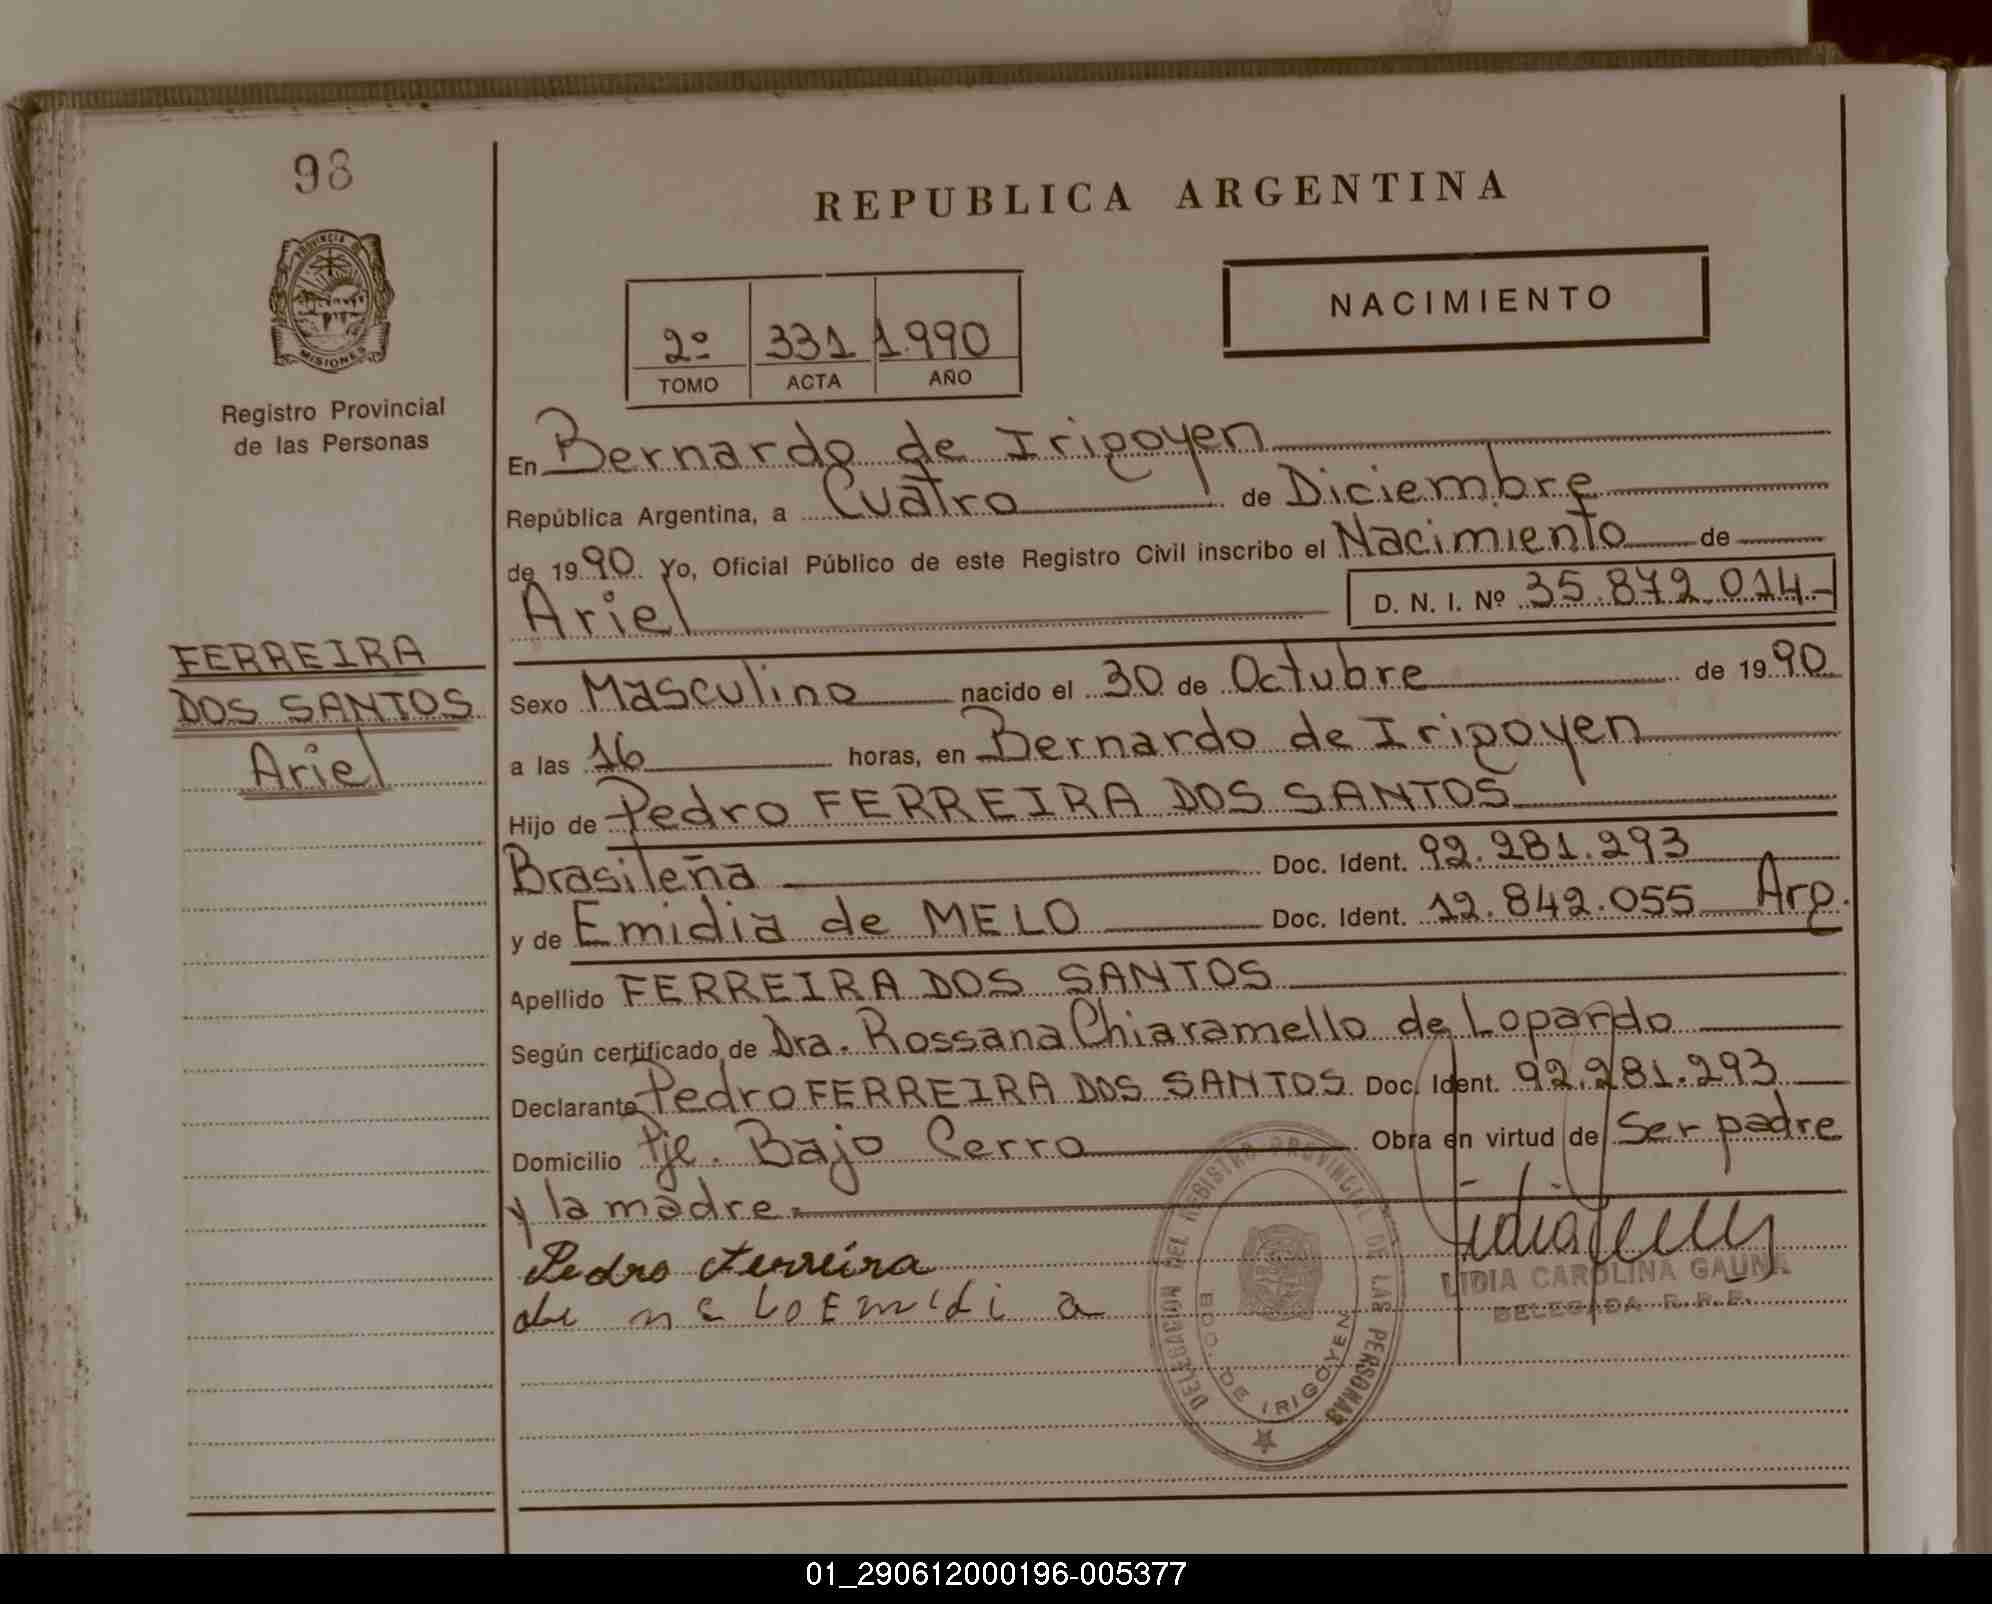 98
PROVINCIA DE
MISIONES
Registro Provincial
de las Personas
FERREIRA
DOS SANTOS
Ariel
REPUBLICA ARGENTINA
2º 331 1.990
TOMO ACTA AÑO
NACIMIENTO
En Bernardo de Irigoyen
República Argentina, a Cuatro de Diciembre
de 1990 Yo, Oficial Público de este Registro Civil inscribo el Nacimiento de
Ariel D. N. I. Nº 35.872.014.-
Sexo Masculino nacido el 30 de Octubre de 1990
a las 16 horas, en Bernardo de Irigoyen
Hijo de Pedro FERREIRA DOS SANTOS
Brasileña Doc. Ident. 92.281.293
y de Emidia de MELO Doc. Ident. 12.842.055 Arg.
Apellido FERREIRA DOS SANTOS
Según certificado de Dra. Rossana Chiaramello de Lopardo
Declarante Pedro FERREIRA DOS SANTOS Doc. Ident. 92.281.293
Domicilio Pje. Bajo Cerro Obra en virtud de Ser padre
y la madre.
Pedro Ferreira
de meloEmidi a
DELEGACION DEL REGISTRO PROVINCIAL DE LAS PERSONAS
BDO. DE IRIGOYEN
LIDIA CAROLINA GAUNA
DELEGADA R.P.P.
01_290612000196-005377